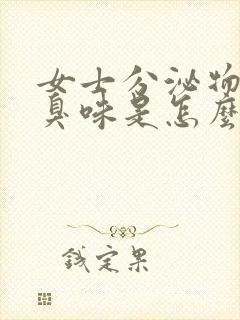 女士分泌物
臭味是怎麼
钱定果